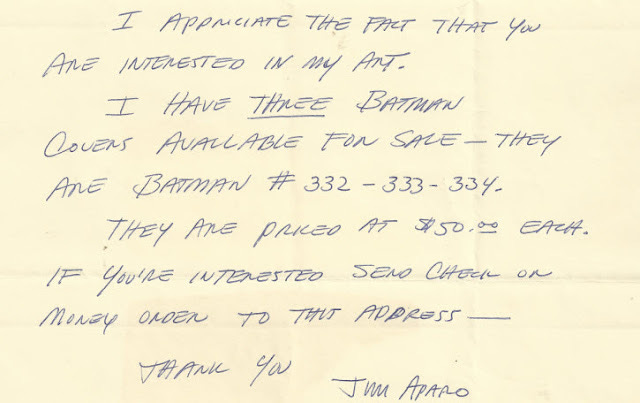 I APPRICIATE THE FACT THAT YOU
ARE INTERESTED IN MY ART.
I HAVE THREE BATMAN
COVERS AVAILABLE FOR SALE — THEY
ARE BATMAN # 332 – 333 – 334.
THEY ARE PRICED AT $50.00 EACH.
IF YOU'RE INTERESTED SEND CHECK OR
MONEY ORDER TO THIS ADDRESS —
THANK YOU
JIM APARO